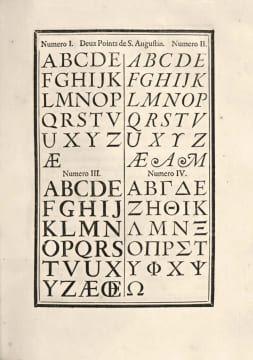 Numero I. Deux Points de S. Augustin. Numero II.
ABCDE
FGHIJK
LMNOP
QRSTV
UXYZ
Æ
ABCDE
FGHIJK
LMNOP
QRSTV
UXYZ
Æ A M
Numero III.
ABCDE
FGHIJ
KLMN
OPQRS
TVUX
YZÆŒ
Numero IV.
ΑΒΓΔΕ
ΖΗΘΙΚ
ΛΜΝΞ
ΟΠΡΣΤ
ΥΦΧΨ
Ω